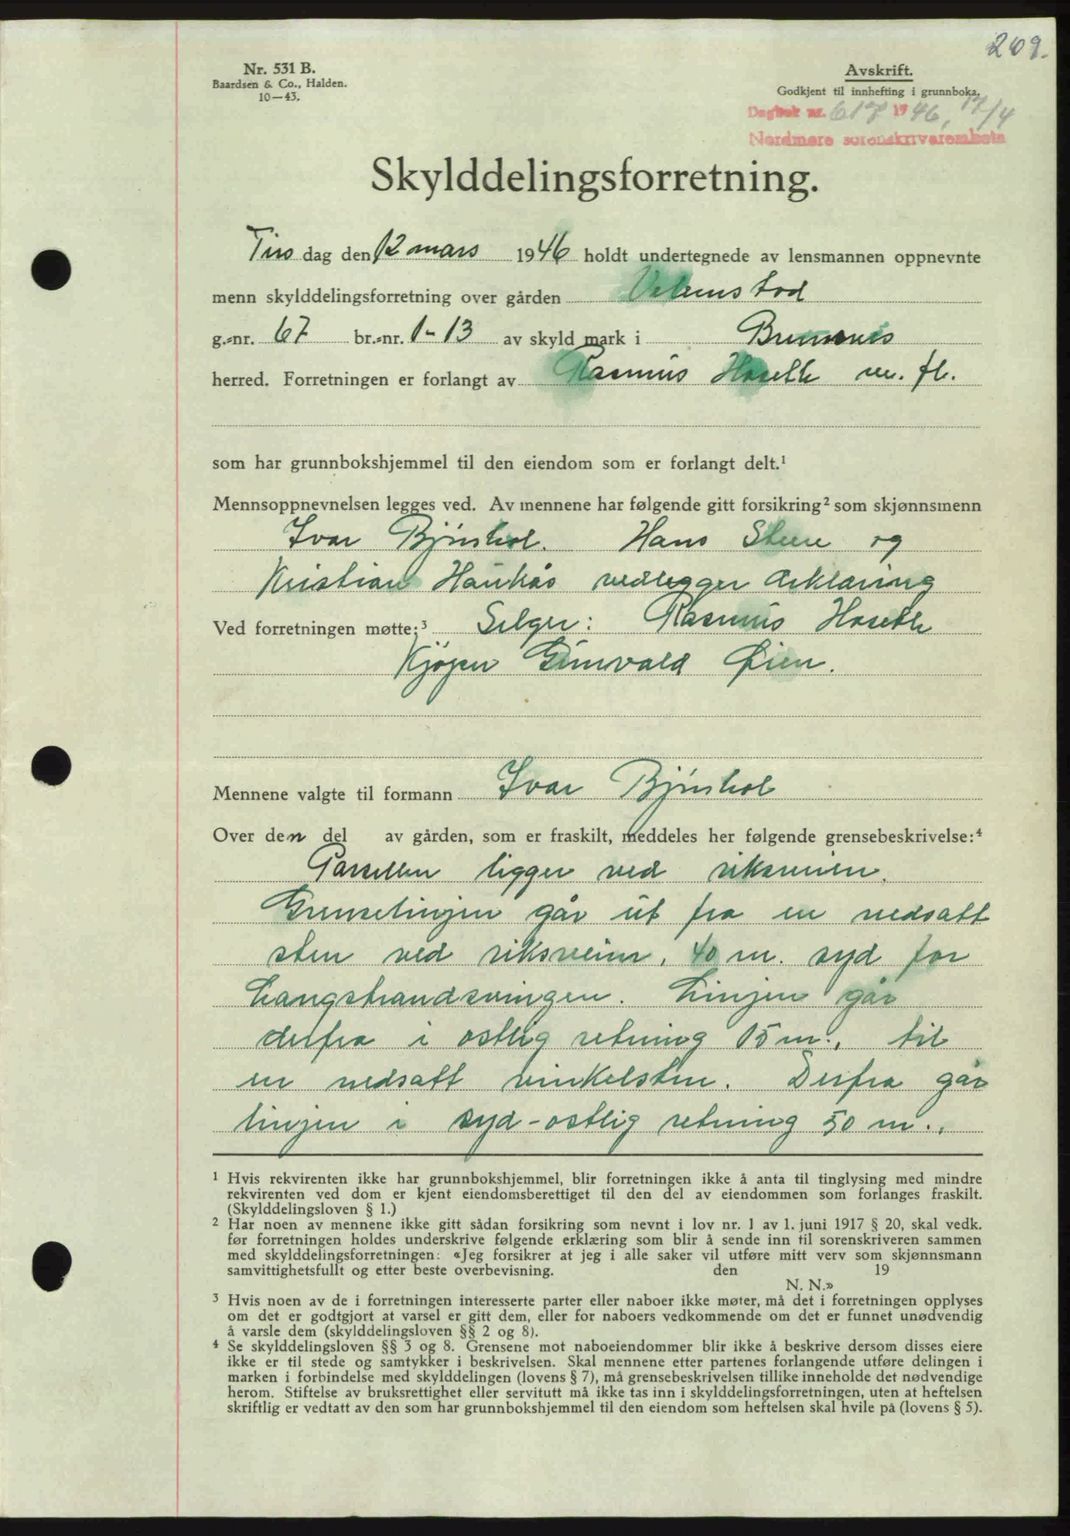 209.
Nr. 531 B.
Baardsen & Co., Halden.
10—43.
Avskrift.
Godkjent til innhefting i grunnboka.
Dagbok nr. 617 1946, 17/4
Nordmøre sorenskriverembete
Skylddelingsforretning.
Tirsdag den 12 mars 1946 holdt undertegnede av lensmannen oppnevnte
menn skylddelingsforretning over gården
g.-nr. 67 br.-nr. 1-13 av skyld mark i Bremsnes
herred. Forretningen er forlangt av Rasmus Hoseth m. fl.
som har grunnbokshjemmel til den eiendom som er forlangt delt.¹
Mennsoppnevnelsen legges ved. Av mennene har følgende gitt forsikring² som skjønnsmenn
Ivar Bjørshol. Hans Steen og
Kristian Haukås vedlegger erklæring
Ved forretningen møtte:³ Selger: Rasmus Hoseth
Kjøper Gunvald Øien.
Mennene valgte til formann Ivar Bjørshol
Over den del av gården, som er fraskilt, meddeles her følgende grensebeskrivelse:⁴
Parsellen ligger ved riksveien.
Grenselinjen går ut fra en nedsatt
sten ved riksveien, 40 m. syd for
Langstrandsvingen. Linjen går
derfra i ostlig retning 15 m., til
en nedsatt vinkelsten. Derfra går
linjen i syd-ostlig retning 50 m.,
¹ Hvis rekvirenten ikke har grunnbokshjemmel, blir forretningen ikke å anta til tinglysing med mindre
rekvirenten ved dom er kjent eiendomsberettiget til den del av eiendommen som forlanges fraskilt.
(Skylddelingsloven § 1.)
² Har noen av mennene ikke gitt sådan forsikring som nevnt i lov nr. 1 av 1. juni 1917 § 20, skal vedk.
før forretningen holdes underskrive følgende erklæring som blir å sende inn til sorenskriveren sammen
med skylddelingsforretningen: «Jeg forsikrer at jeg i alle saker vil utføre mitt verv som skjønnsmann
samvittighetsfullt og etter beste overbevisning. den 19
N. N.»
³ Hvis noen av de i forretningen interesserte parter eller naboer ikke møter, må det i forretningen opplyses
om det er godtgjort at varsel er gitt dem, eller for naboers vedkommende om det er funnet unødvendig
å varsle dem (skylddelingsloven §§ 2 og 8).
⁴ Se skylddelingsloven §§ 3 og 8. Grensene mot naboeiendommer blir ikke å beskrive dersom disses eiere
ikke er til stede og samtykker i beskrivelsen. Skal mennene etter partenes forlangende utføre delingen i
marken i forbindelse med skylddelingen (lovens § 7), må grensebeskrivelsen tillike inneholde det nødvendige
herom. Stiftelse av bruksrettighet eller servitutt må ikke tas inn i skylddelingsforretningen, uten at heftelsen
skriftlig er vedtatt av den som har grunnbokshjemmel til den eiendom som heftelsen skal hvile på (lovens § 5).